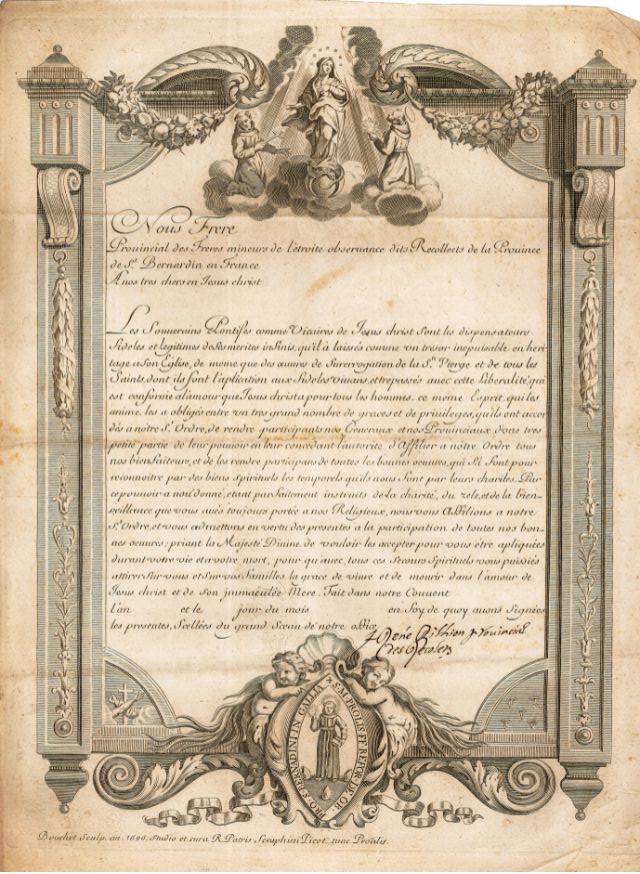 Nous Frere
Provincial des Freres mineurs de l'etroite observance dits Recollects de la Province
de S.t Bernardin en France
A nos tres chers en Jesus christ
Les Souverains Pontifes comme Vicaires de Jesus christ Sont les dispensateurs
fideles et legitimes de Ses merites infinis, qu'il à laissés comme un tresor inepuisable en heri
tage a Son Eglise, de meme que des œuvres de Surerrogation de la S.te Vierge et de tous les
Saints, dont ils font l'aplication aux fideles vivans, et trepassés avec cette liberalité qui
est conforme a l'amour que Jesus christ a pour tous les hommes. ce mème Esprit, qui les
anime, les a obligés entre un tres grand nombre de graces et de privileges, qu'ils ont accor
dés a nôtre S.t Ordre, de rendre participants nos Generaux et nos Provinciaux d'une tres
petite partie de leur pouvoir en leur concedant l'autorité d'Affilier a nôtre Ordre tous
nos bienfaiteurs, et de les rendre participans de toutes les bonnes oeuvres, qui S'i font pour
reconnoitre par des biens Spirituels les temporels qu'ils nous font par leurs charités. Par
ce pouvoir a nous donné, etant parfaitement instruits de la charité, du zele, et de la bien-
veillance que vous avés toujours portée a nos Religieux, nous vous Affilions a nôtre
S.t Ordre, et vous admettons en vertu des presentes a la participation de toutes nos bon-
nes oeuvres; priant la Majesté Divine de vouloir les accepter pour vous être apliquées
durant vôtre vie et a vôtre mort, pour qu'avec tous ces Secours Spirituels vous puissiés
attirer Sur vous et Sur vos familles la grace de vivre et de mourir dans l'amour de
Jesus christ et de Son jmmaculée Mere. Fait dans notre Couvent
l'an et le jour du mois en foy de quoy avons Signées
les presentes, Scellées du grand Sceau de notre office
f René provincial
des Recolets
S. M. PROLIS FF. REFOR. DE OB. PRO. S. BERNARDINI IN GALLIA
Bouchet Sculp. an. 1696. Studio et cura R. Patris Seraphini Picot, tunc Prou.lis.